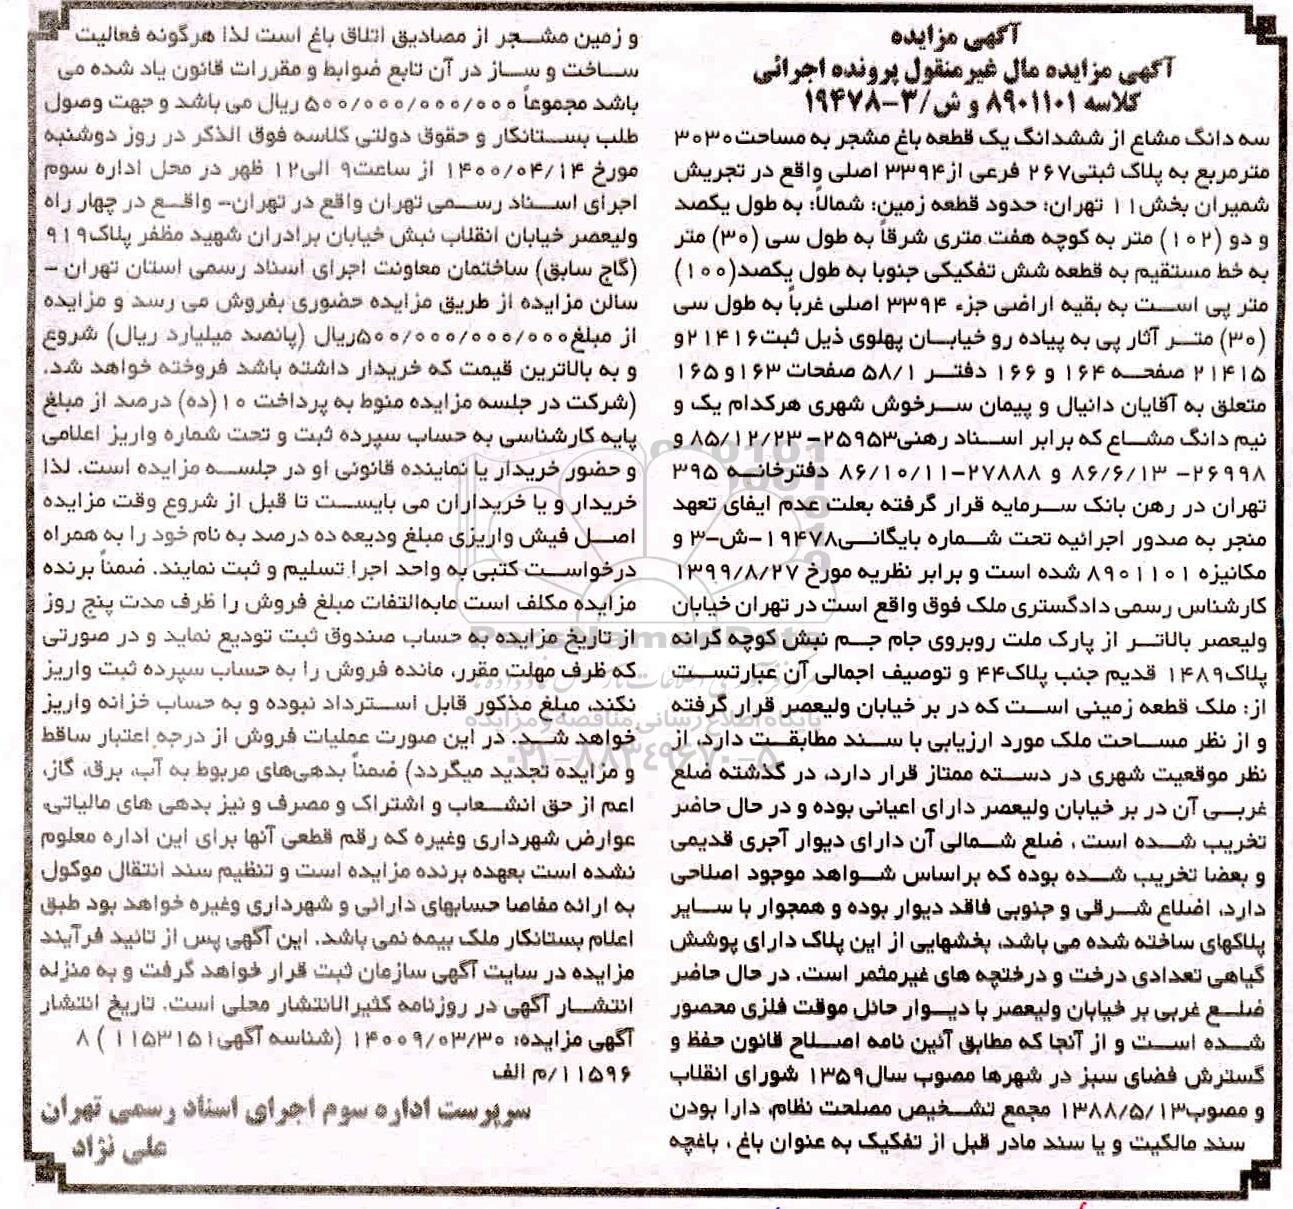 آگهی مزایده
آگهی مزایده مال غیرمنقول پرونده اجرائی
کلاسه ۸۹۰۱۱۰۱ و ش/۳-۱۹۴۷۸
سه دانگ مشاع از ششدانگ یک قطعه باغ مشجر به مساحت۳۰۳۰
مترمربع به پلاک ثبتی۲۶۷ فرعی از۳۳۹۴ اصلی واقع در تجریش
شمیران بخش۱۱ تهران: حدود قطعه زمین: شمالاً: به طول یکصد
و دو (۱۰۲) متر به کوچه هفت متری شرقاً به طول سی (۳۰) متر
به خط مستقیم به قطعه شش تفکیکی جنوبا به طول یکصد(۱۰۰)
متر پی است به بقیه اراضی جزء ۳۳۹۴ اصلی غرباً به طول سی
(۳۰) متر آثار پی به پیاده رو خیابان پهلوی ذیل ثبت۲۱۴۱۶و
۲۱۴۱۵ صفحه ۱۶۴ و ۱۶۶ دفتر ۵۸/۱ صفحات ۱۶۳و ۱۶۵
متعلق به آقایان دانیال و پیمان سرخوش شهری هرکدام یک و
نیم دانگ مشاع که برابر اسناد رهنی۲۵۹۵۳-۸۵/۱۲/۲۳ و
۲۶۹۹۸- ۸۶/۶/۱۳ و ۲۷۸۸۸-۸۶/۱۰/۱۱ دفترخانه ۳۹۵
تهران در رهن بانک سرمایه قرار گرفته بعلت عدم ایفای تعهد
منجر به صدور اجرائیه تحت شماره بایگانی۱۹۴۷۸-ش-۳ و
مکانیزه ۸۹۰۱۱۰۱ شده است و برابر نظریه مورخ ۱۳۹۹/۸/۲۷
کارشناس رسمی دادگستری ملک فوق واقع است در تهران خیابان
ولیعصر بالاتر از پارک ملت روبروی جام جم نبش کوچه گرانه
پلاک۱۴۸۹ قدیم جنب پلاک۴۴ و توصیف اجمالی آن عبارتست
از: ملک قطعه زمینی است که در بر خیابان ولیعصر قرار گرفته
و از نظر مساحت ملک مورد ارزیابی با سند مطابقت دارد، از
نظر موقعیت شهری در دسته ممتاز قرار دارد، در گذشته ضلع
غربی آن در بر خیابان ولیعصر دارای اعیانی بوده و در حال حاضر
تخریب شده است ، ضلع شمالی آن دارای دیوار آجری قدیمی
و بعضا تخریب شده بوده که براساس شواهد موجود اصلاحی
دارد، اضلاع شرقی و جنوبی فاقد دیوار بوده و همجوار با سایر
پلاکهای ساخته شده می باشد، بخشهایی از این پلاک دارای پوشش
گیاهی تعدادی درخت و درختچه های غیرمثمر است. در حال حاضر
ضلع غربی بر خیابان ولیعصر با دیوار حائل موقت فلزی محصور
شده است و از آنجا که مطابق آئین نامه اصلاح قانون حفظ و
گسترش فضای سبز در شهرها مصوب سال۱۳۵۹ شورای انقلاب
و مصوب۱۳۸۸/۵/۱۳ مجمع تشخیص مصلحت نظام، دارا بودن
سند مالکیت و یا سند مادر قبل از تفکیک به عنوان باغ ، باغچه
و زمین مشجر از مصادیق اتلاق باغ است لذا هرگونه فعالیت
ساخت و ساز در آن تابع ضوابط و مقررات قانون یاد شده می
باشد مجموعاً ۵۰۰/۰۰۰/۰۰۰/۰۰۰ ریال می باشد و جهت وصول
طلب بستانکار و حقوق دولتی کلاسه فوق الذکر در روز دوشنبه
مورخ ۱۴۰۰/۰۴/۱۴ از ساعت۹ الی۱۲ ظهر در محل اداره سوم
اجرای اسناد رسمی تهران واقع در تهران- واقع در چهار راه
ولیعصر خیابان انقلاب نبش خیابان برادران شهید مظفر پلاک۹۱۹
(گاج سابق) ساختمان معاونت اجرای اسناد رسمی استان تهران -
سالن مزایده از طریق مزایده حضوری بفروش می رسد و مزایده
از مبلغ۵۰۰/۰۰۰/۰۰۰/۰۰۰ریال (پانصد میلیارد ریال) شروع
و به بالاترین قیمت که خریدار داشته باشد فروخته خواهد شد.
(شرکت در جلسه مزایده منوط به پرداخت ۱۰(ده) درصد از مبلغ
پایه کارشناسی به حساب سپرده ثبت و تحت شماره واریز اعلامی
و حضور خریدار یا نماینده قانونی او در جلسه مزایده است. لذا
خریدار و یا خریداران می بایست تا قبل از شروع وقت مزایده
اصل فیش واریزی مبلغ ودیعه ده درصد به نام خود را به همراه
درخواست کتبی به واحد اجرا تسلیم و ثبت نمایند. ضمناً برنده
مزایده مکلف است مابه‌التفات مبلغ فروش را ظرف مدت پنج روز
از تاریخ مزایده به حساب صندوق ثبت تودیع نماید و در صورتی
که ظرف مهلت مقرر، مانده فروش را به حساب سپرده ثبت واریز
نکند، مبلغ مذکور قابل استرداد نبوده و به حساب خزانه واریز
خواهد شد. در این صورت عملیات فروش از درجه اعتبار ساقط
و مزایده تجدید میگردد) ضمناً بدهی‌های مربوط به آب، برق، گاز،
اعم از حق انشعاب و اشتراک و مصرف و نیز بدهی های مالیاتی،
عوارض شهرداری وغیره که رقم قطعی آنها برای این اداره معلوم
نشده است بعهده برنده مزایده است و تنظیم سند انتقال موکول
به ارائه مفاصا حسابهای دارائی و شهرداری وغیره خواهد بود طبق
اعلام بستانکار ملک بیمه نمی باشد. این آگهی پس از تائید فرآیند
مزایده در سایت آگهی سازمان ثبت قرار خواهد گرفت و به منزله
انتشار آگهی در روزنامه کثیرالانتشار محلی است. تاریخ انتشار
آگهی مزایده: ۱۴۰۰۹/۰۳/۳۰ (شناسه آگهی۱۱۵۳۱۵۱ ) ۸
۱۱۵۹۶/م الف
سرپرست اداره سوم اجرای اسناد رسمی تهران
علی نژاد
ParsNamadData
پایگاه اطلاع رسانی مناقصه و مزایده
۰۲۱-۸۸۳۴۹۶۷۰-۵